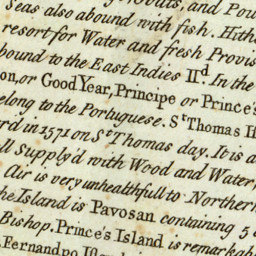 Seas also abound with fish. Hith
resort for Water and fresh Provis
bound to the East Indies II.d In the
on, or Good Year, Principe or Prince's
elong to the Portuguese. St Thomas If
r'd in 1571 on St Thomas day. It is a
ll Supply'd with Wood and Water,
Air is very unhealthfull to Northern
he Island is Pavosan containing 5
Bishop. Prince's Island is remarkab
Fernando